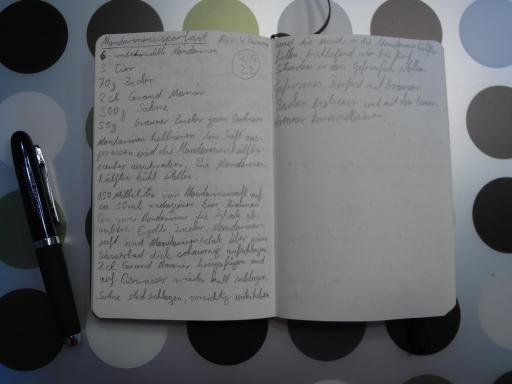 Mandarinenparfait
Für 4 Personen
6 unbehandelte Mandarinen
3 Eier
70g Zucker
2 cl Grand Marnier
300g Sahne
50g brauner Zucker zum Bestreuen
Mandarinen halbieren, den Saft aus-
pressen und die Mandarinenhälften
sauber auskratzen. Die Mandarinen-
hälften kühl stellen.
150 Milliliter vom Mandarinensaft auf
ca. 50ml reduzieren. Eier trennen
Von zwei Mandarinen die Schale ab
reiben. Eigelb, Zucker, Mandarinen-
saft und Mandarinenschale über einem
Wasserbad dick schaumig aufschlagen.
2 cl Grand Marnier hinzufügen und
auf Eiswasser wieder kalt schlagen.
Sahne steif schlagen, vorsichtig unterheben
und die Masse in die Mandarinenhälften
füllen anschließend für fünf
Stunden in den Gefrierschrank stellen.
Gefrorenes Parfait mit braunem
Zucker bestreuen und mit dem
Brenner karamellisieren.